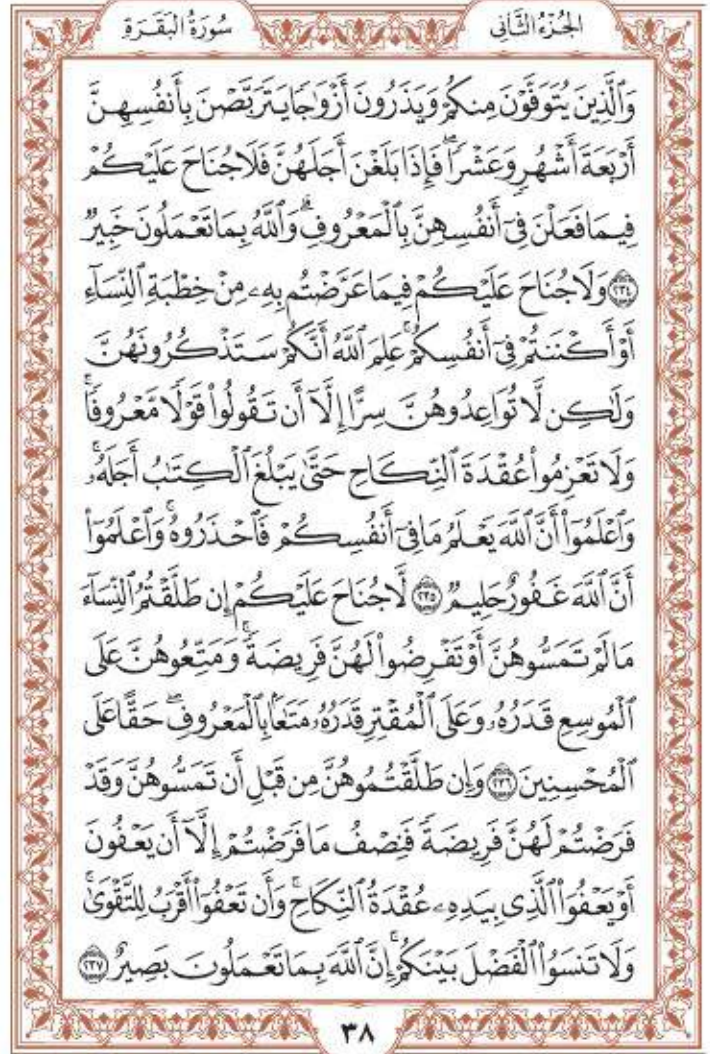 الجُزْءُ الثَّانِي
سُورَةُ الْبَقَرَةِ
وَٱلَّذِينَ يُتَوَفَّوْنَ مِنكُمْ وَيَذَرُونَ أَزْوَٰجًا يَتَرَبَّصْنَ بِأَنفُسِهِنَّ
أَرْبَعَةَ أَشْهُرٍ وَعَشْرًا ۖ فَإِذَا بَلَغْنَ أَجَلَهُنَّ فَلَا جُنَاحَ عَلَيْكُمْ
فِيمَا فَعَلْنَ فِىٓ أَنفُسِهِنَّ بِٱلْمَعْرُوفِ ۗ وَٱللَّهُ بِمَا تَعْمَلُونَ خَبِيرٌ
٢٣٤ وَلَا جُنَاحَ عَلَيْكُمْ فِيمَا عَرَّضْتُم بِهِۦ مِنْ خِطْبَةِ ٱلنِّسَآءِ
أَوْ أَكْنَنتُمْ فِىٓ أَنفُسِكُمْ ۚ عَلِمَ ٱللَّهُ أَنَّكُمْ سَتَذْكُرُونَهُنَّ
وَلَٰكِن لَّا تُوَاعِدُوهُنَّ سِرًّا إِلَّآ أَن تَقُولُوا۟ قَوْلًا مَّعْرُوفًا ۚ
وَلَا تَعْزِمُوا۟ عُقْدَةَ ٱلنِّكَاحِ حَتَّىٰ يَبْلُغَ ٱلْكِتَٰبُ أَجَلَهُۥ ۚ
وَٱعْلَمُوٓا۟ أَنَّ ٱللَّهَ يَعْلَمُ مَا فِىٓ أَنفُسِكُمْ فَٱحْذَرُوهُ ۚ وَٱعْلَمُوٓا۟
أَنَّ ٱللَّهَ غَفُورٌ حَلِيمٌ ٢٣٥ لَّا جُنَاحَ عَلَيْكُمْ إِن طَلَّقْتُمُ ٱلنِّسَآءَ
مَا لَمْ تَمَسُّوهُنَّ أَوْ تَفْرِضُوا۟ لَهُنَّ فَرِيضَةً ۚ وَمَتِّعُوهُنَّ عَلَى
ٱلْمُوسِعِ قَدَرُهُۥ وَعَلَى ٱلْمُقْتِرِ قَدَرُهُۥ مَتَٰعًۢا بِٱلْمَعْرُوفِ ۖ حَقًّا عَلَى
ٱلْمُحْسِنِينَ ٢٣٦ وَإِن طَلَّقْتُمُوهُنَّ مِن قَبْلِ أَن تَمَسُّوهُنَّ وَقَدْ
فَرَضْتُمْ لَهُنَّ فَرِيضَةً فَنِصْفُ مَا فَرَضْتُمْ إِلَّآ أَن يَعْفُونَ
أَوْ يَعْفُوَا۟ ٱلَّذِى بِيَدِهِۦ عُقْدَةُ ٱلنِّكَاحِ ۚ وَأَن تَعْفُوٓا۟ أَقْرَبُ لِلتَّقْوَىٰ ۚ
وَلَا تَنسَوُا۟ ٱلْفَضْلَ بَيْنَكُمْ ۚ إِنَّ ٱللَّهَ بِمَا تَعْمَلُونَ بَصِيرٌ ٢٣٧
٣٨